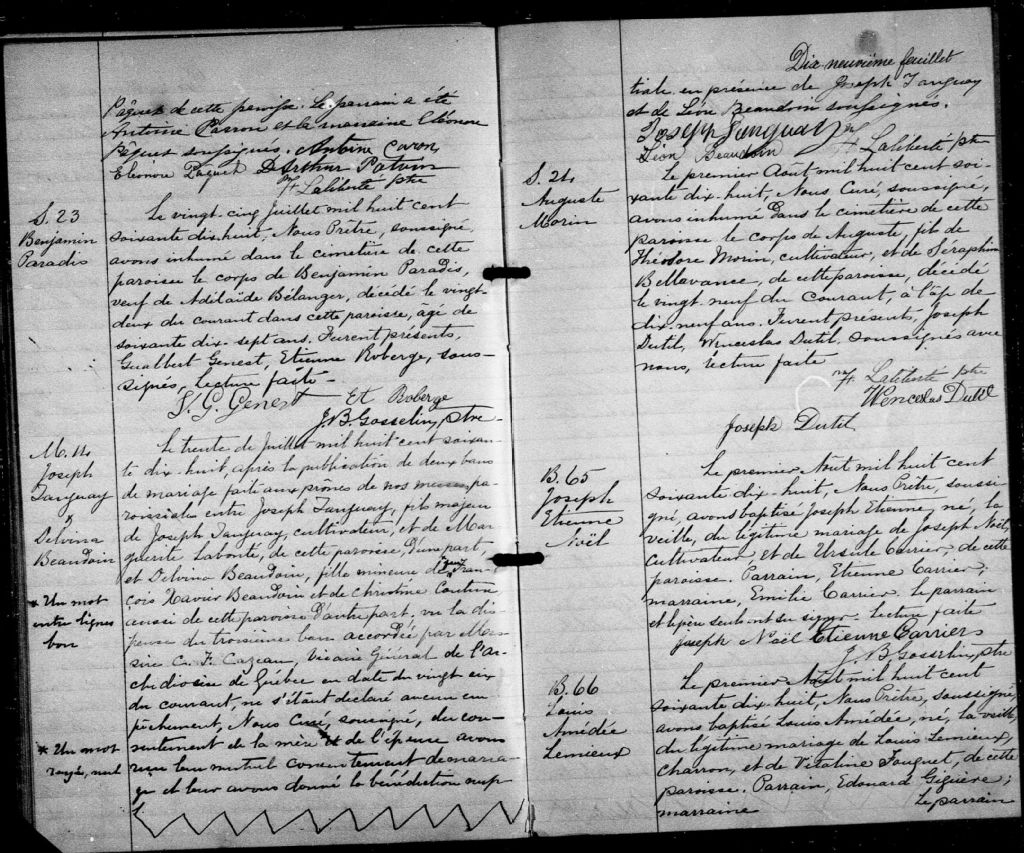 Pâquet de cette paroisse. Le parrain a été
Antoine Carron et la marraine Eléonore
Pâquet soussignés. Antoine Caron
Eleonore Paquet D. Arthur Potvin
Laliberté ptre
S. 23
Benjamin
Paradis
Le vingt-cinq Juillet mil huit cent
soixante dix-huit, Nous Prêtre, soussigné,
avons inhumé dans le cimetière de cette
paroisse le corps de Benjamin Paradis,
veuf de Adélaïde Bélanger, décédé le vingt-
deux du courant dans cette paroisse, âgé de
soixante dix-sept ans. Furent présents,
Gualbert Genest, Etienne Roberge, sous-
signés, Lecture faite -
J. G. Genest Et Roberge
J.B. Gosselin, ptre
M. 14
Joseph
Tanguay
&
Delvina
Beaudoin
* Un mot
entre lignes
bon
* Un mot
rayé, nul
Le trente de Juillet mil huit cent soixan-
te dix-huit après la publication de deux bans
de mariage faite aux prônes de nos messes pa-
roissiales entre Joseph Tanguay, fils majeur
de Joseph Tanguay, cultivateur, et de Mar-
guerite Labonté, de cette paroisse, d'une part,
et Delvina Beaudoin, fille mineure de feu Fran-
çois Xavier Beaudoin et de Christine Couture
aussi de cette paroisse d'autre part, vu la dis-
pense du troisième ban accordée par Mes-
sire C. F. Cazeau, Vicaire Général de l'ar-
chidiocèse de Québec en date du vingt six
du courant, ne s'étant déclaré aucun em
pêchement, Nous Curé, soussigné, du con-
sentement de la mère et de l'épouse avons
reçu leur mutuel consentement de maria-
ge et leur avons donné la bénédiction nup
Dix-neuvième feuillet
tiale en présence de Joseph Tanguay
et de Léon Beaudoin soussignés.
Joseph Tanguay
Léon Beaudoin Laliberté ptre
S. 24
Auguste
Morin
Le premier Août mil huit cent soi-
xante dix-huit, Nous Curé, soussigné,
avons inhumé dans le cimetière de cette
paroisse le corps de Auguste, fils de
Théodore Morin, cultivateur, et de Séraphine
Bellavance, de cette paroisse, décédé
le vingt-neuf du courant, à l'âge de
dix-neuf ans. Furent présents, Joseph
Dutil, Wenceslas Dutil, soussignés avec
nous, lecture faite
Laliberté ptre
Wenceslas Dutil
Joseph Dutil
B. 65
Joseph
Etienne
Noël
Le premier Août mil huit cent
soixante dix-huit, Nous Prêtre, soussi
gné, avons baptisé Joseph Etienne, né, la
veille, du légitime mariage de Joseph Noël,
Cultivateur et de Ursule Carrier, de cette
paroisse. Parrain, Etienne Carrier;
marraine, Emilie Carrier. Le parrain
et le père seuls ont su signer. Lecture faite
joseph Noël Etienne Carrier
J. B Gosselin, ptre
B. 66
Louis
Amédée
Lemieux
Le premier Août mil huit cent
soixante dix-huit, Nous Prêtre, soussigné
avons baptisé Louis Amédée, né, la veille,
du légitime mariage de Louis Lemieux,
Charron, et de Vitaline Fouquet, de cette
paroisse. Parrain, Edouard Giguère;
marraine Le parrain